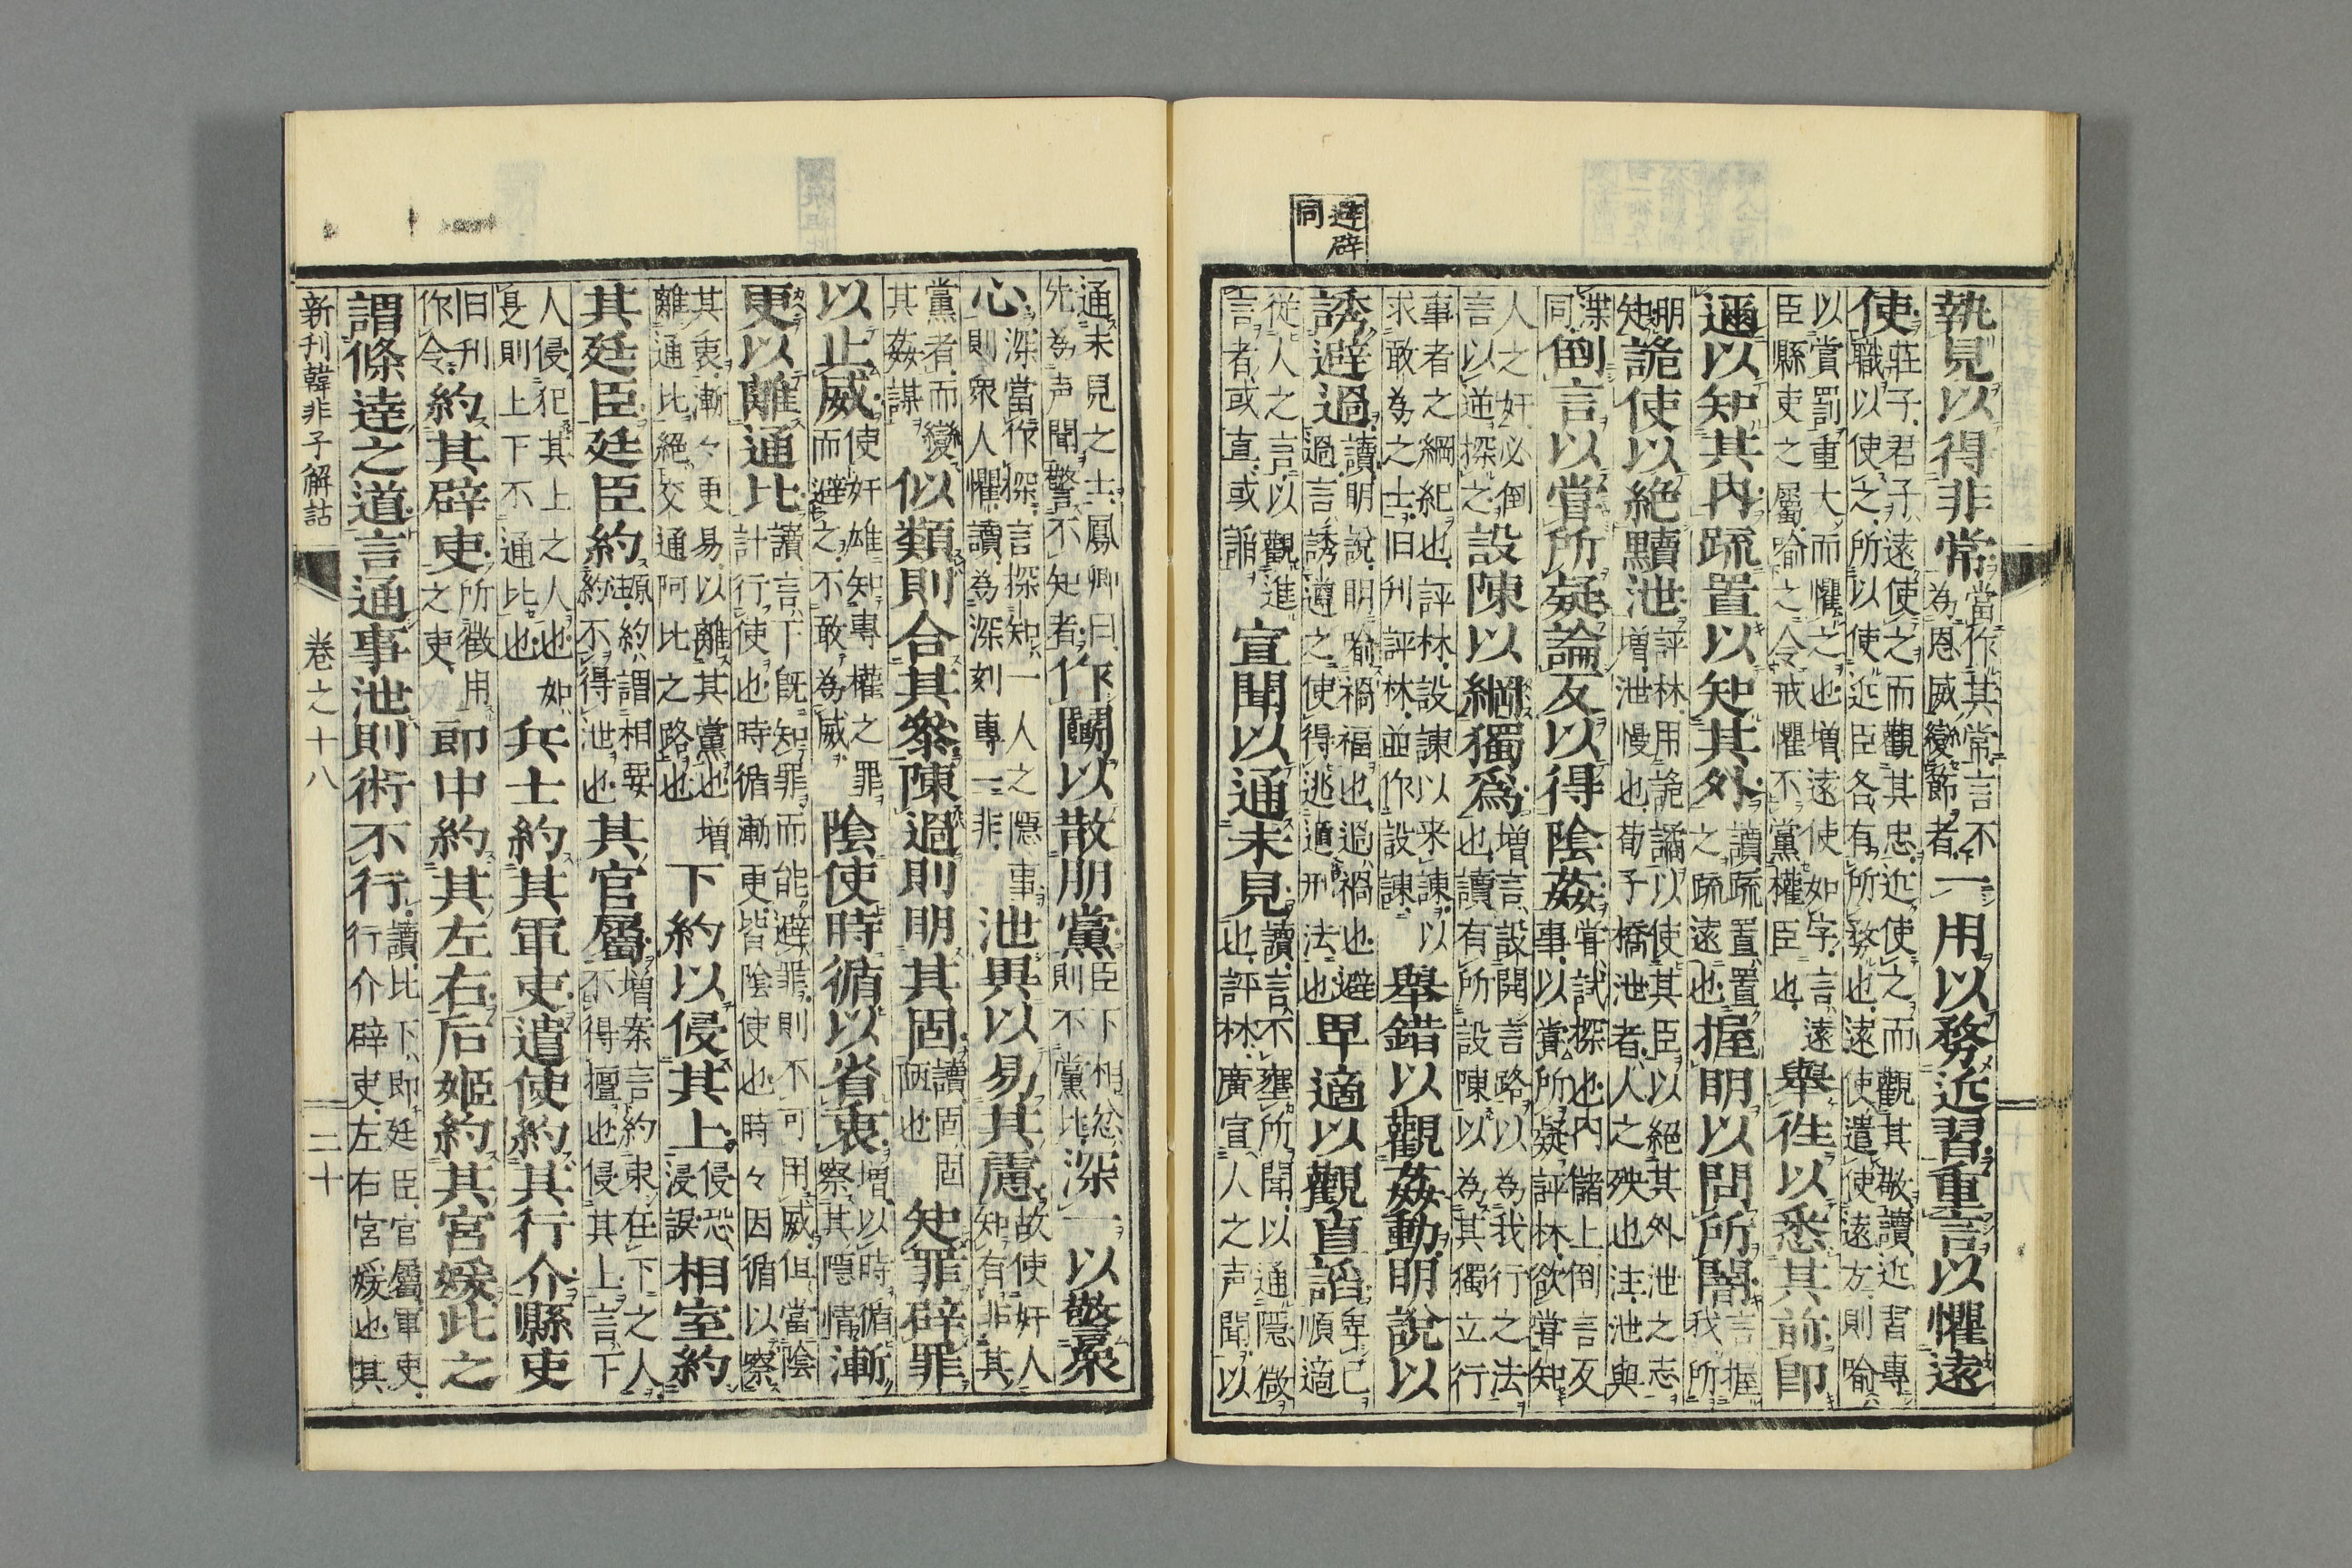 避辟
同
執見以得非常當作其常言不為恩威變節者一用以務近習重言以懼遠
使莊子君子遠使之而觀其忠近使之而觀其敬讀近習專職以使之所以使近臣各有所務也遠使遣使遠方則喻
以賞罰重大而懼之也増遠使如字言遠臣縣吏之屬喻之令戒懼不黨權臣也舉徃以悉其前卽
邇以知其内疏置以知其外讀疏置置之疏遠也握明以問所闇言握我所
朋知詭使以絶黷泄評林用詭譎以使其臣以絕其外泄之志増泄慢也荀子橋泄者人之殃也注泄與
渫同倒言以嘗所疑論反以得陰姦嘗試探也内儲上倒言反事以嘗所疑評林欲嘗知
人之奸必倒言以逆探之設陳以綱獨爲増言設開言路以為我行之法也讀有所設陳以為其獨立行
事者之綱紀也評林設諫以来諫以求敢為之士旧刊評林並作設諫舉錯以觀姦動明說以
誘避過讀明說明喻禍福也過禍也避過言誘遵之使得逃遁刑法也卑適以觀直謟卑己順適
從人之言以觀進言者或直或謟宣聞以通未見讀言不壅所聞以通隱微也評林廣宣人之声聞以
通未見之士鳳卿曰先為声聞警不知者作鬭以散朋黨臣下相忿則不黨比深一以敬衆
心深當作探言探知一人之隱事則衆人懼讀為深刻專一非泄異以易其慮故使奸人知有非其
黨者而變其姦謀似類則合其參陳過則明其固讀固固陋也知罪辟罪
以止威使奸雄知專權之罪而避之不敢為威陰使時循以省衷増以時循察其隱情漸
更以離通比讀言下既知罪而能避罪則不可用威但當陰計行使也時循漸更皆陰使也時々因循以察
其衷漸々更易以離其黨也増離通比絕交通阿比之路也下約以侵其上侵恐浸誤相室約
其廷臣廷臣約頭約謂相要約不得泄也其官屬増案言約束在下之人不得擅也侵其上言下
人侵犯其上之人也如是則上下不通比也兵士約其軍吏遣使約其行介縣吏
旧刊作令約其辟吏所徵用之吏郎中約其左右后姬約其宮媛此之
謂條達之道言通事泄則術不行讀比下即廷臣官屬軍吏行介辟吏左右宮媛也其
新刊韓非子解詁 卷之十八 二十